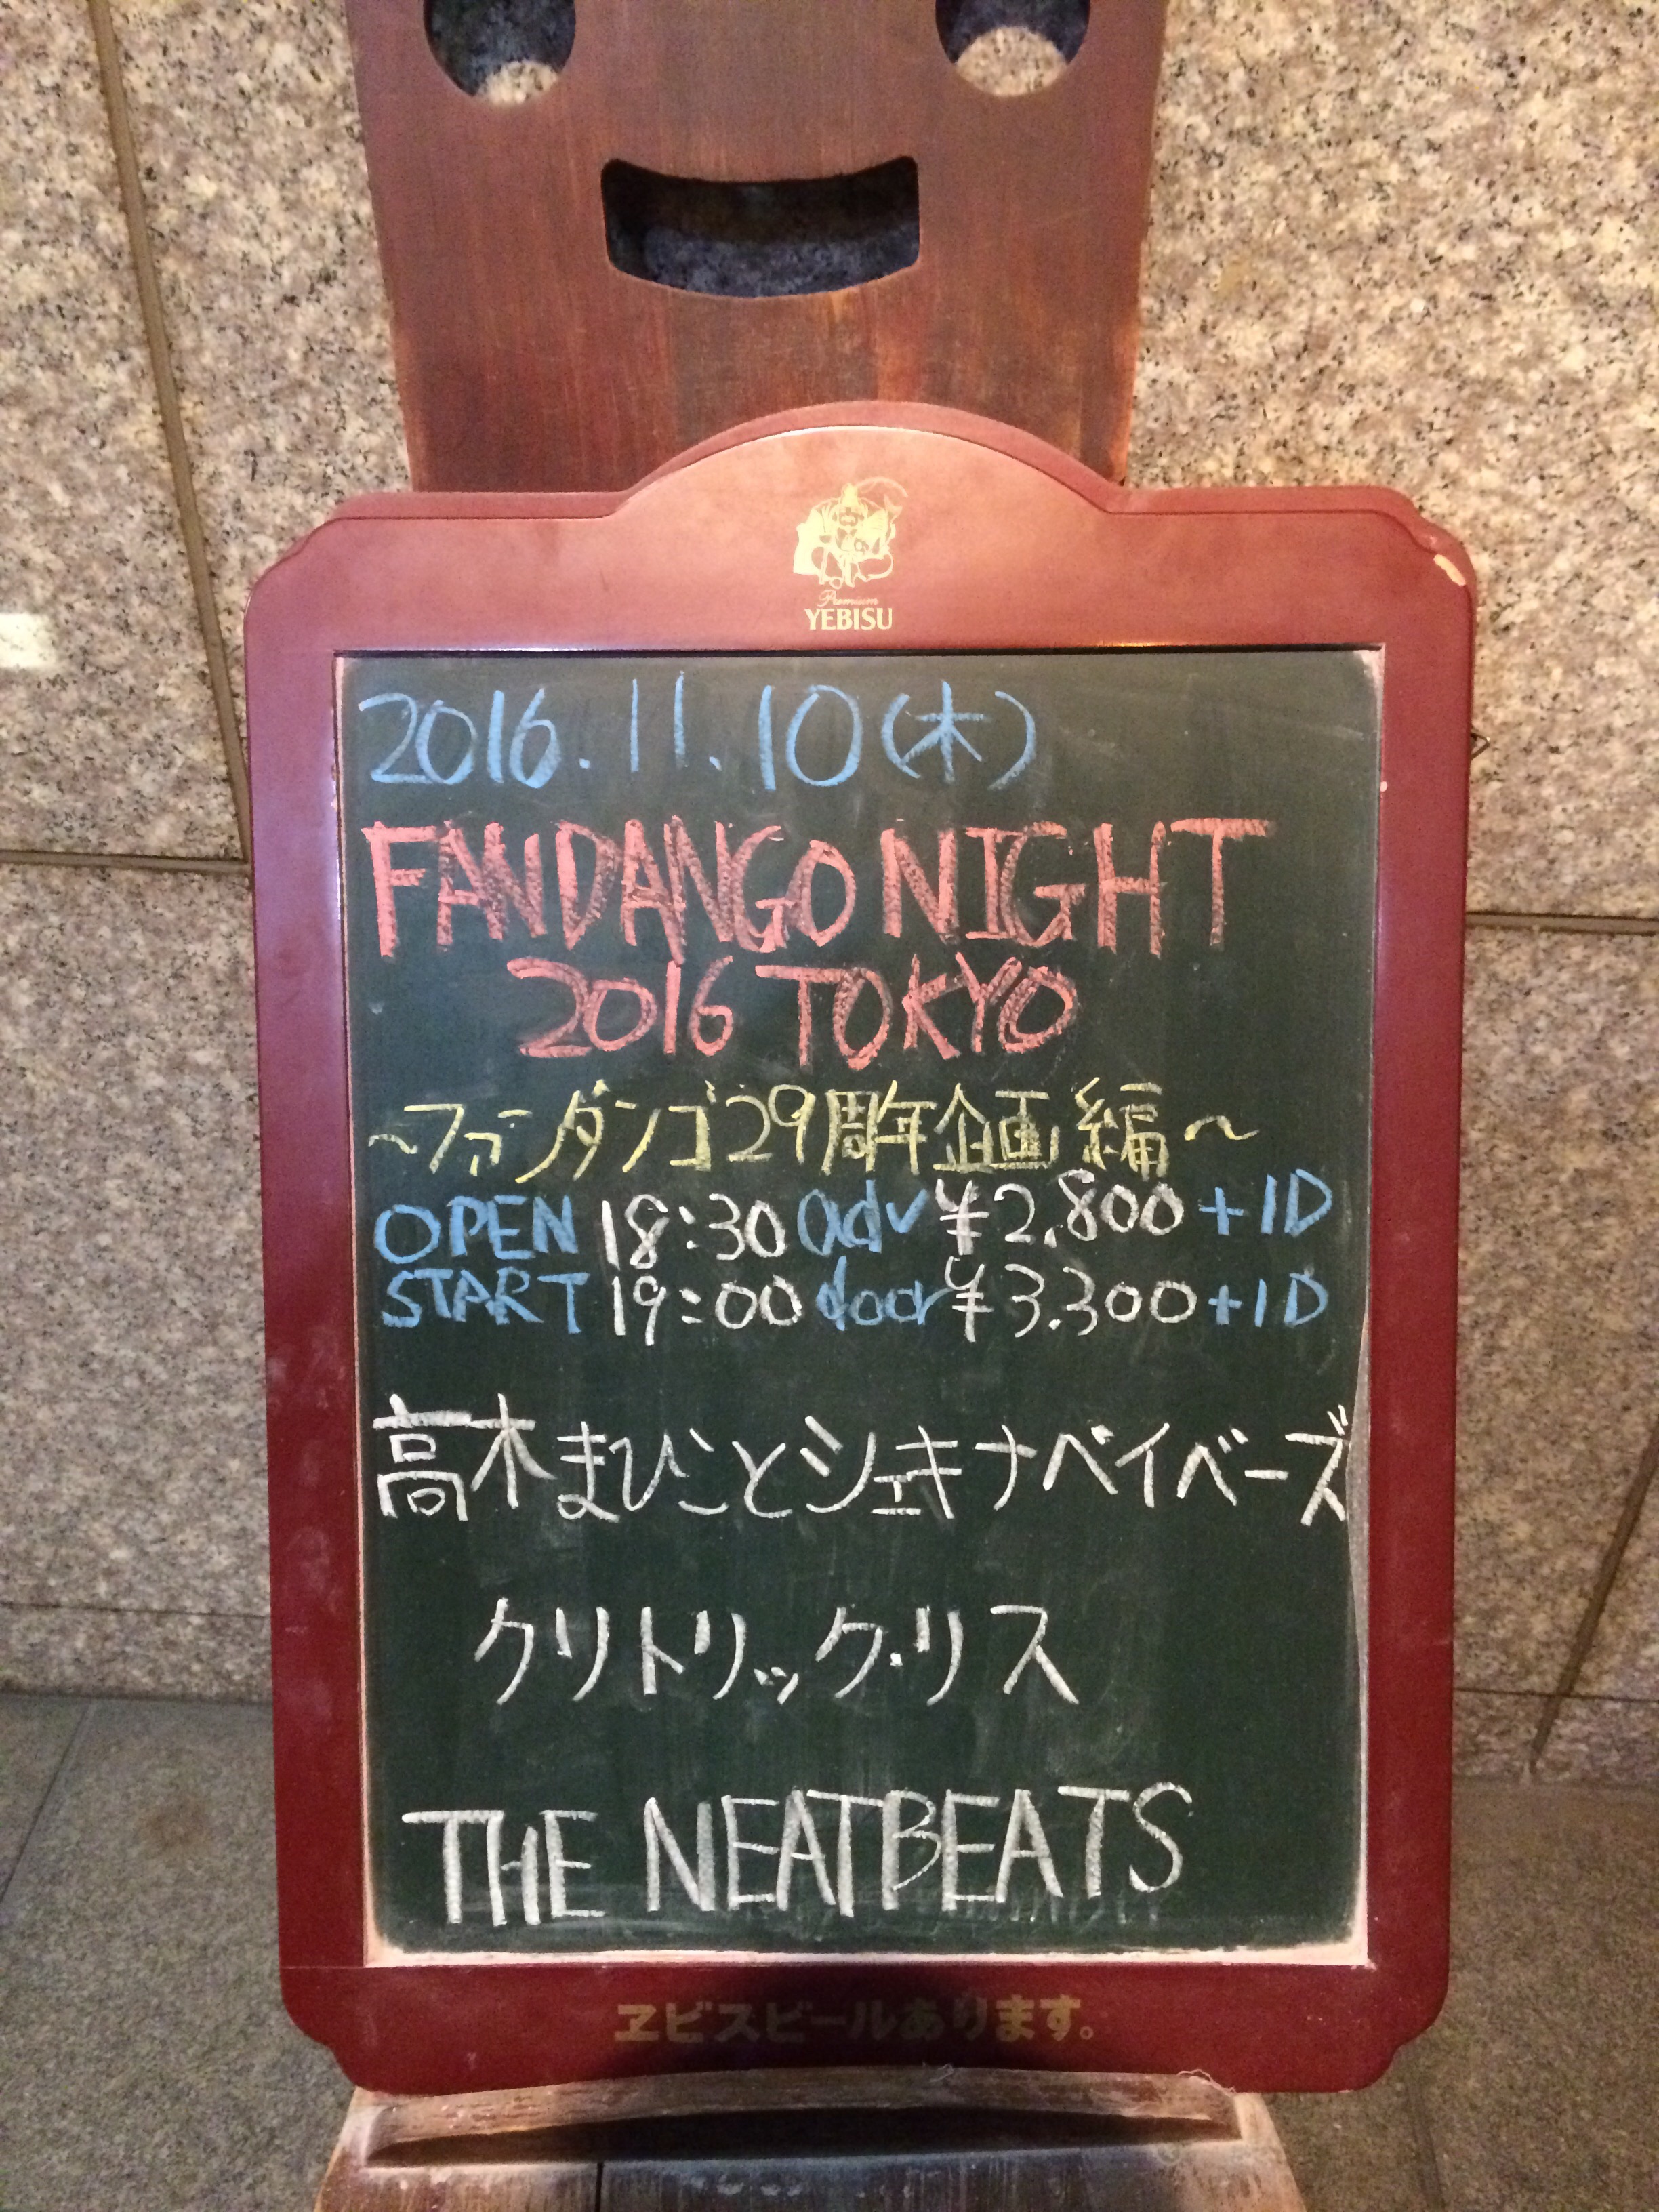 Premium
YEBISU
2016.11.10(木)
FANDANGO NIGHT
2016 TOKYO
～ファンダンゴ29周年企画編～
OPEN 18:30 adv ¥2,800 +1D
START 19:00 door ¥3.300 +1D
高木まひことシェキナベイベーズ
クリトリック・リス
THE NEATBEATS
ヱビスビールあります。